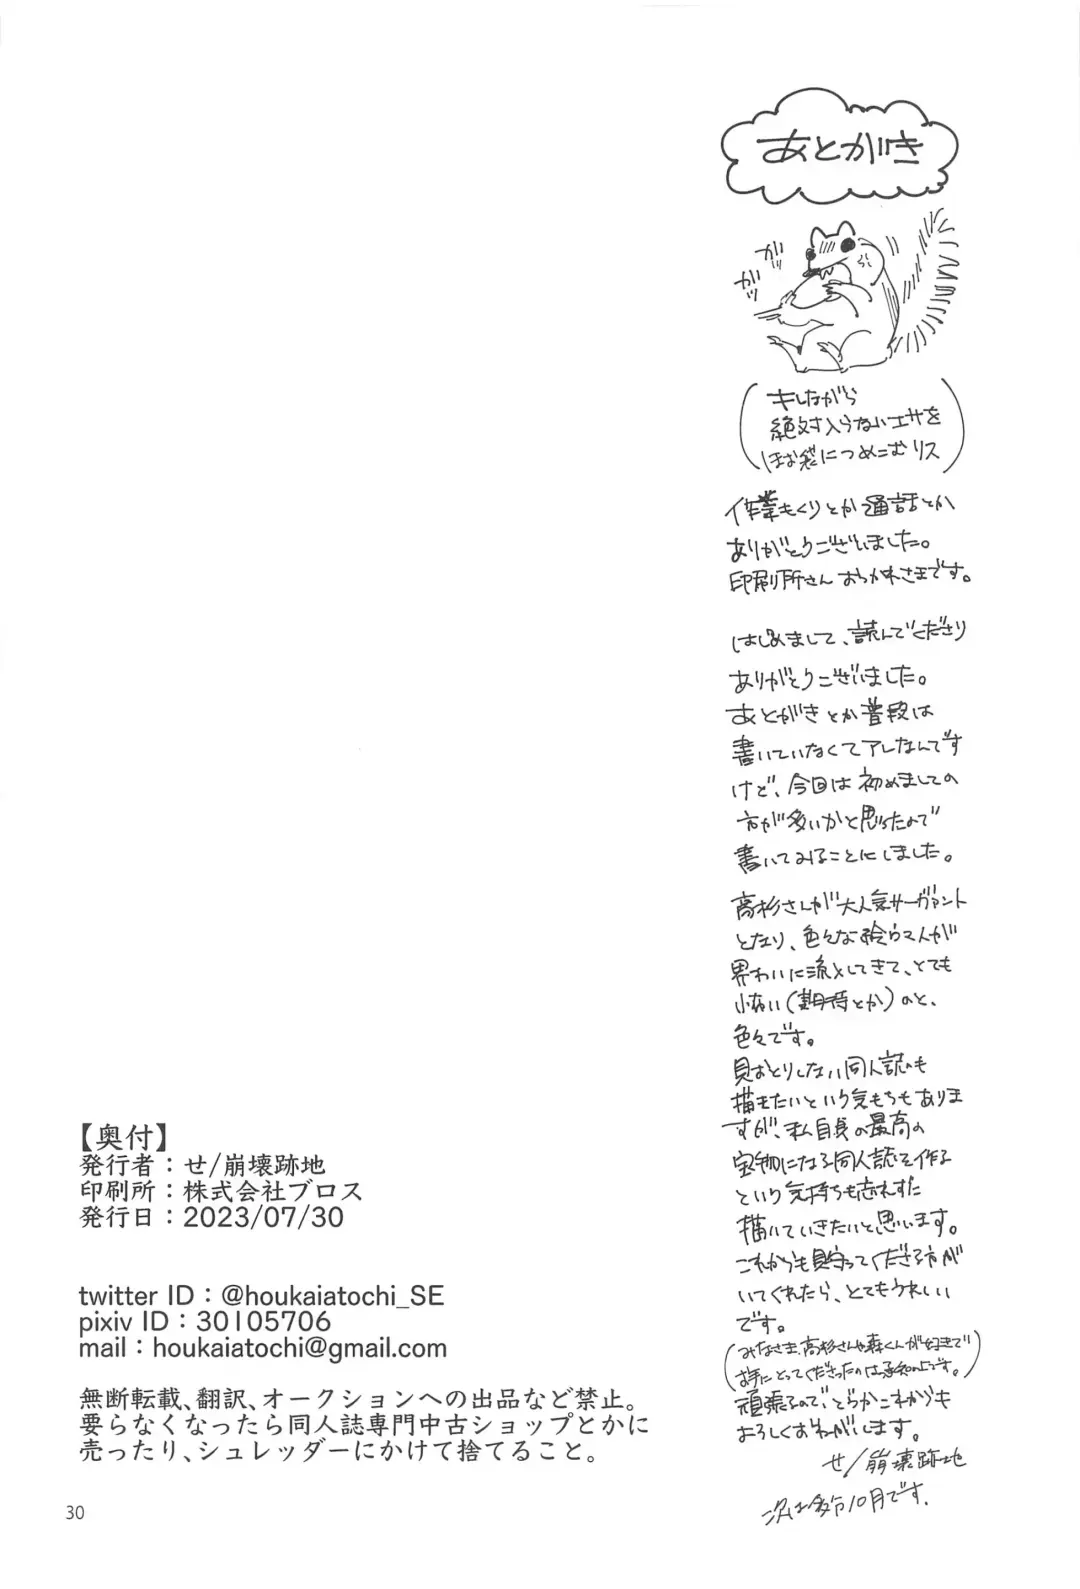 あとがき
ガッ
ガッ
キしながら
絶対入らないエサを
ほお袋につめこむリス
作業もくりとか通話とか
ありがとうございました。
印刷所さんおつかれさまです。
はじめまして、読んでくださり
ありがとうございました。
あとがきとか普段は
書いていなくてアレなんです
けど、今回は初めましての
方が多いかと思ったので
書いてみることにしました。
高杉さんが大人気サーヴァント
となり、色々な絵うマ人が
界わいに流入してきて、とても
怖い(期待とか)のと、
色々です。
見おとりしない同人誌も
描きたいという気もちもありま
すが、私自身の最高の
宝物になる同人誌を作る
という気持ちも忘れずに
描いていきたいと思います。
これからも見守ってくださる方が
いてくれたら、とてもうれしい
です。
(みなさま、高杉さんや森くんが好きで
お手にとってくださったのは承知の上です。)
頑張るので、どうかこれからも
よろしくおねがいします。
せ/崩壊跡地
次は多分10月です.
【奥付】
発行者：せ/崩壊跡地
印刷所：株式会社ブロス
発行日：2023/07/30
twitter ID：@houkaiatochi_SE
pixiv ID：30105706
mail：houkaiatochi@gmail.com
無断転載、翻訳、オークションへの出品など禁止。
要らなくなったら同人誌専門中古ショップとかに
売ったり、シュレッダーにかけて捨てること。
30